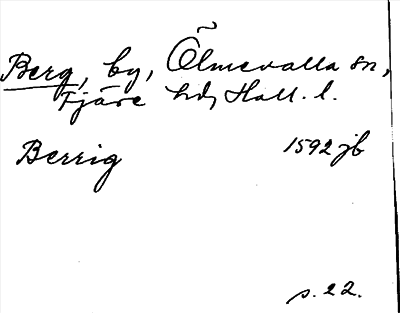 Berg, by, Ölmevalla sn,
Fjäre hd, Hall. l.
Berrig 1592 jb
s. 22.